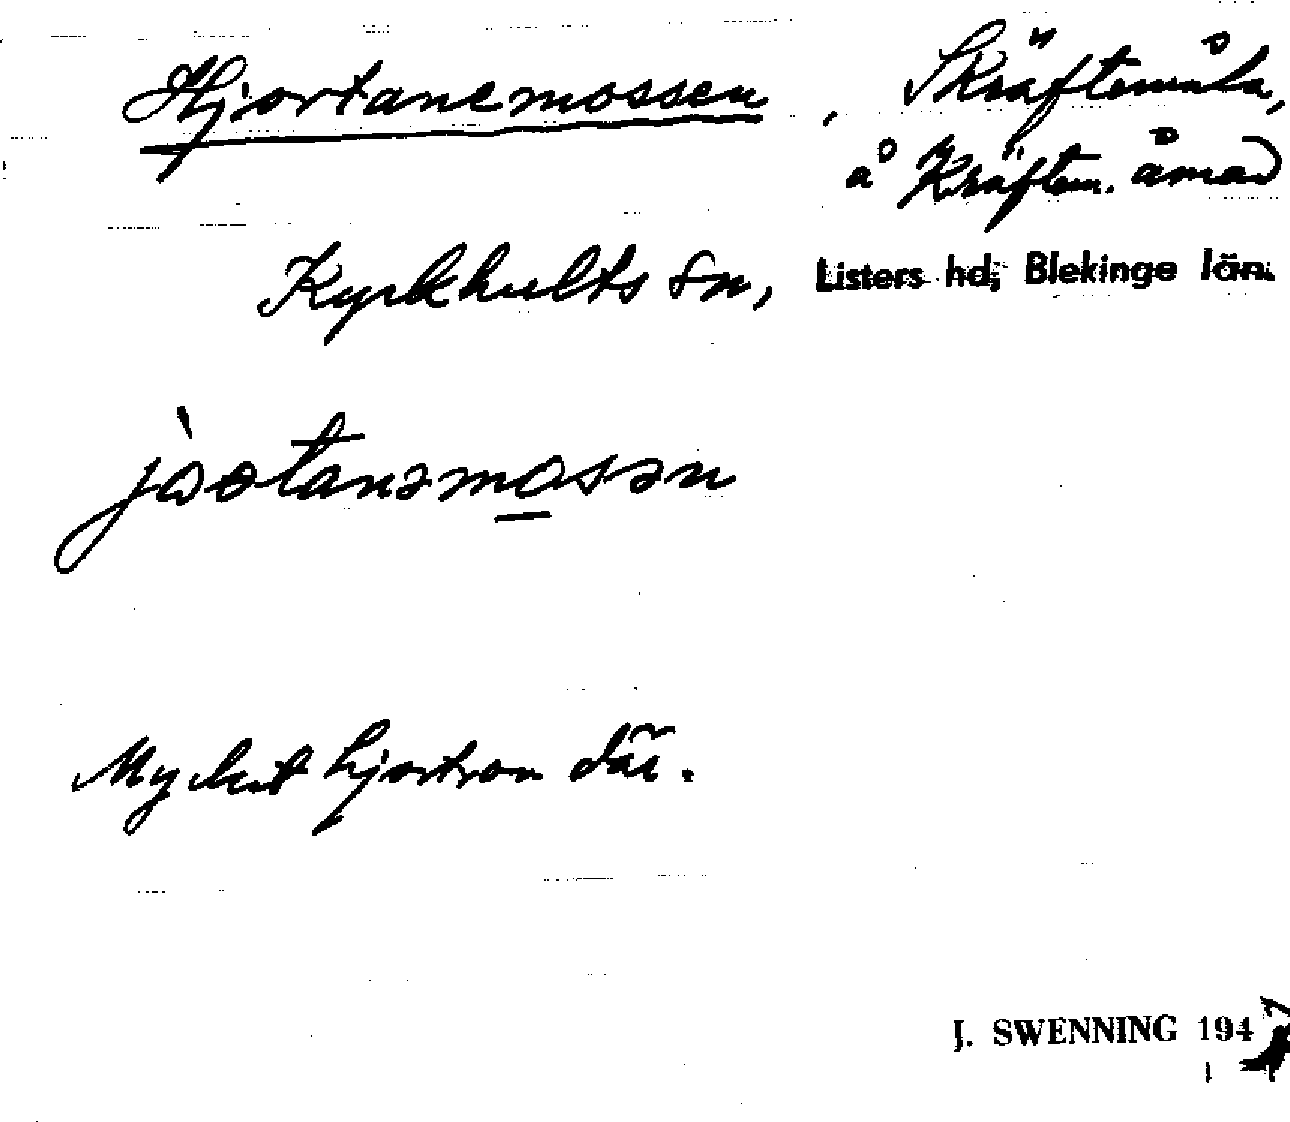 Hjortanemossen, Skräftemåla,
å Kräftem. åmad
Kyrkhults sn, Listers hd, Blekinge län.
jòotanəmosən
Mycket hjortron där.
J. SWENNING 194